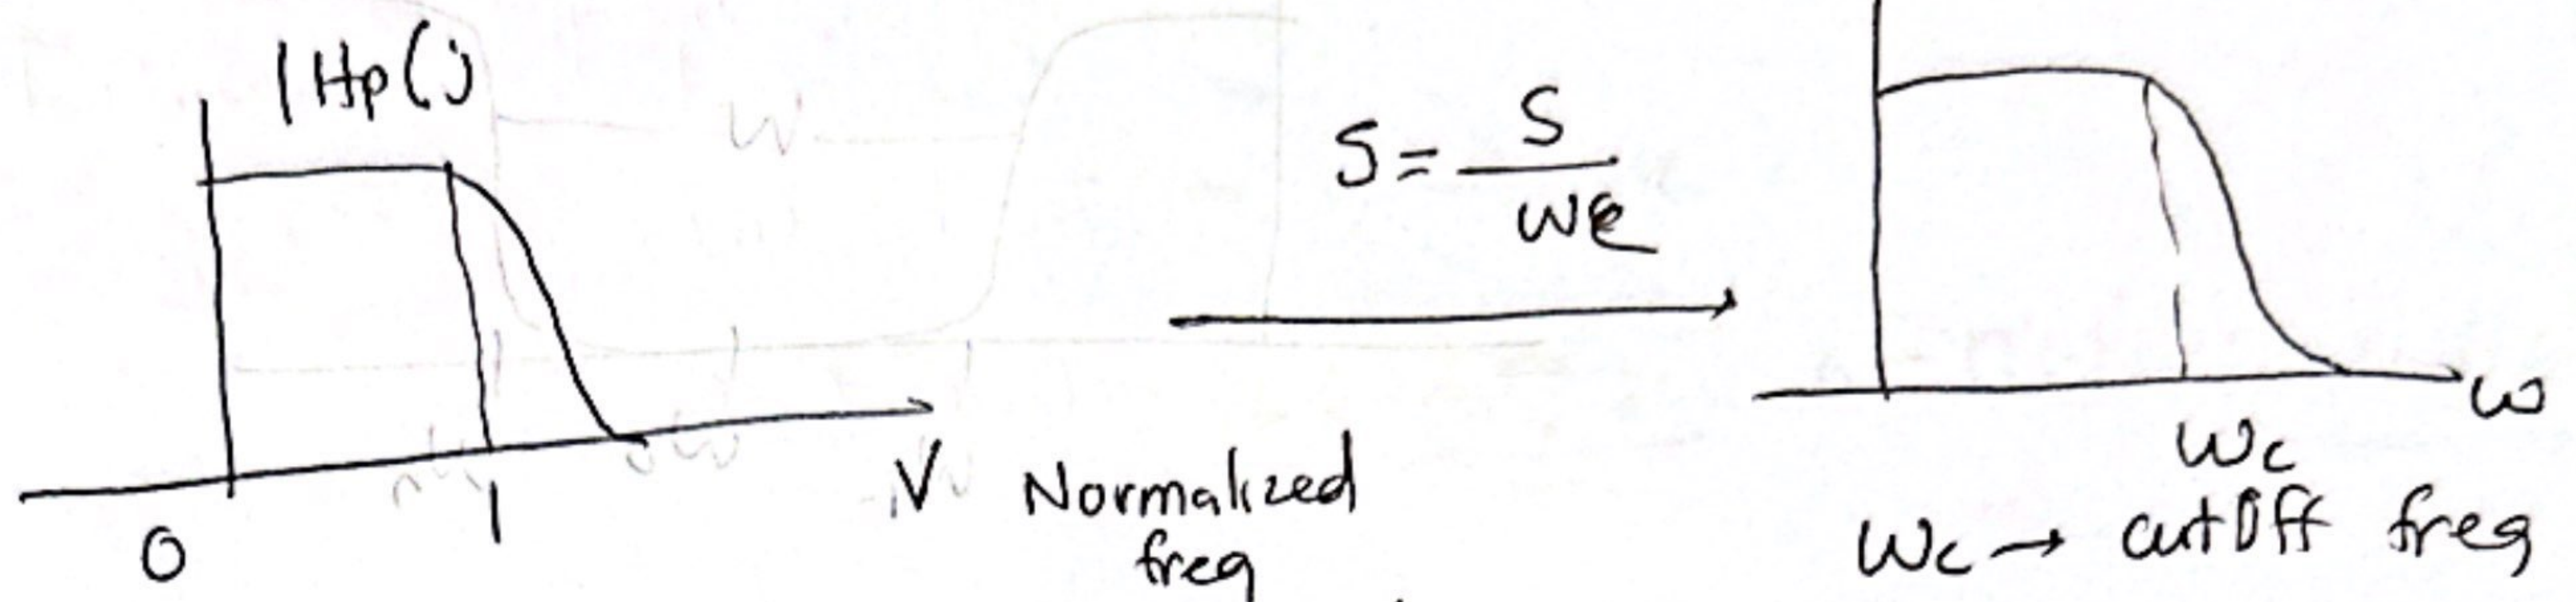 |Hp()
S = S / wc
0
1
V Normalized
freq
w
wc
wc → cutoff freq